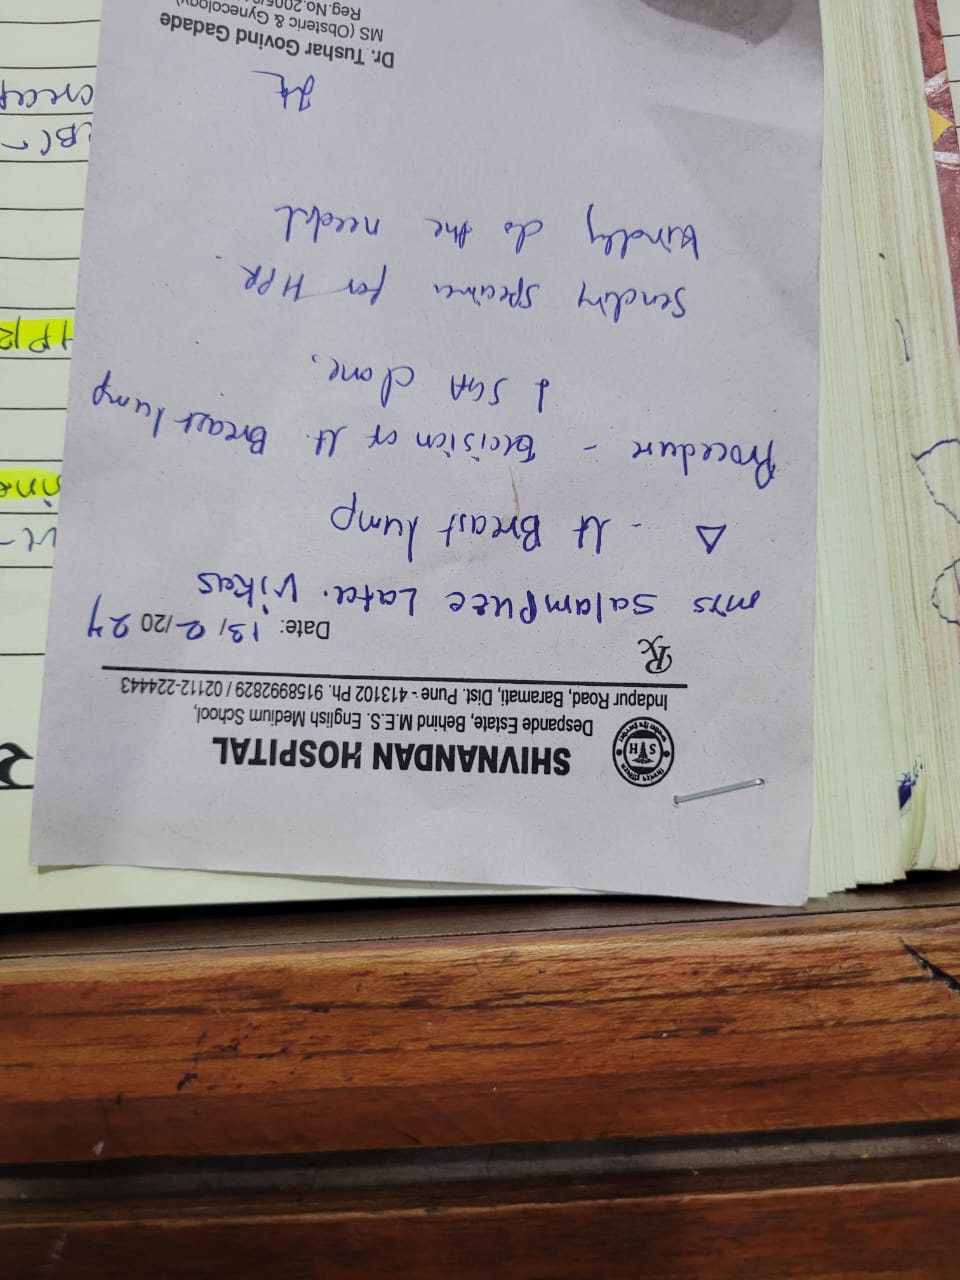 SHIVNANDAN HOSPITAL
Despande Estate, Behind M.E.S. English Medium School,
Indapur Road, Baramati, Dist. Pune - 413102 Ph. 9158992829 / 02112-224443
Rx
Date: 13/2/2024
mrs Salampure Lata. Vikas
Δ - Lt Breast lump
Procedure - Excision of Lt. Breast lump
done.
Sending specimen for HPR.
kindly do the needful
Dr. Tushar Govind Gadade
MS (Obsteric & Gynecology)